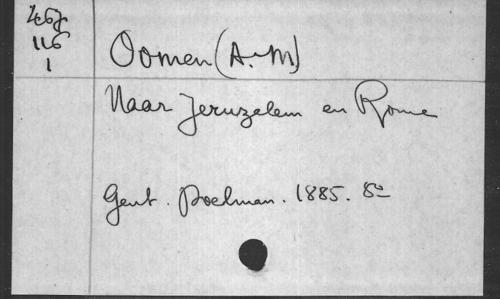 467
116
1
Oomen (A-M)
Naar Jeruzelem en Rome
Gent. Poelman. 1885. 8°